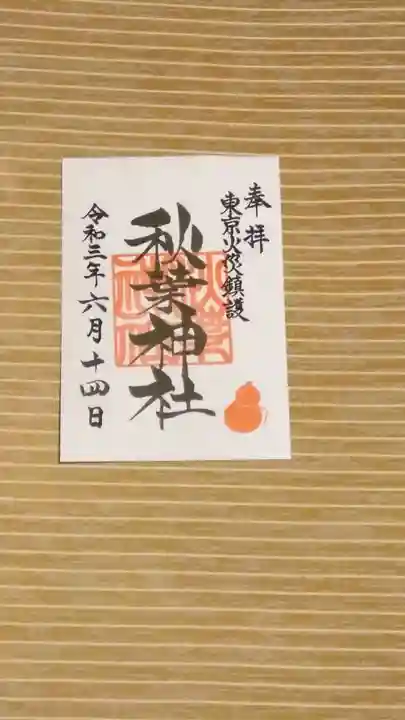 奉拝
東京火災鎮護
秋葉神社
令和三年六月十四日